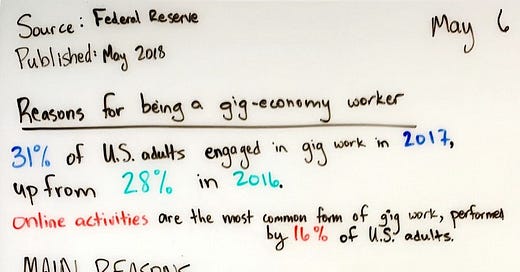 Source: Federal Reserve
May 6
Published: May 2018
Reasons for being a gig-economy worker
31% of U.S. adults engaged in gig work in 2017,
up from 28% in 2016.
Online activities are the most common form of gig work, performed
by 16% of U.S. adults.
MAIN REASONS